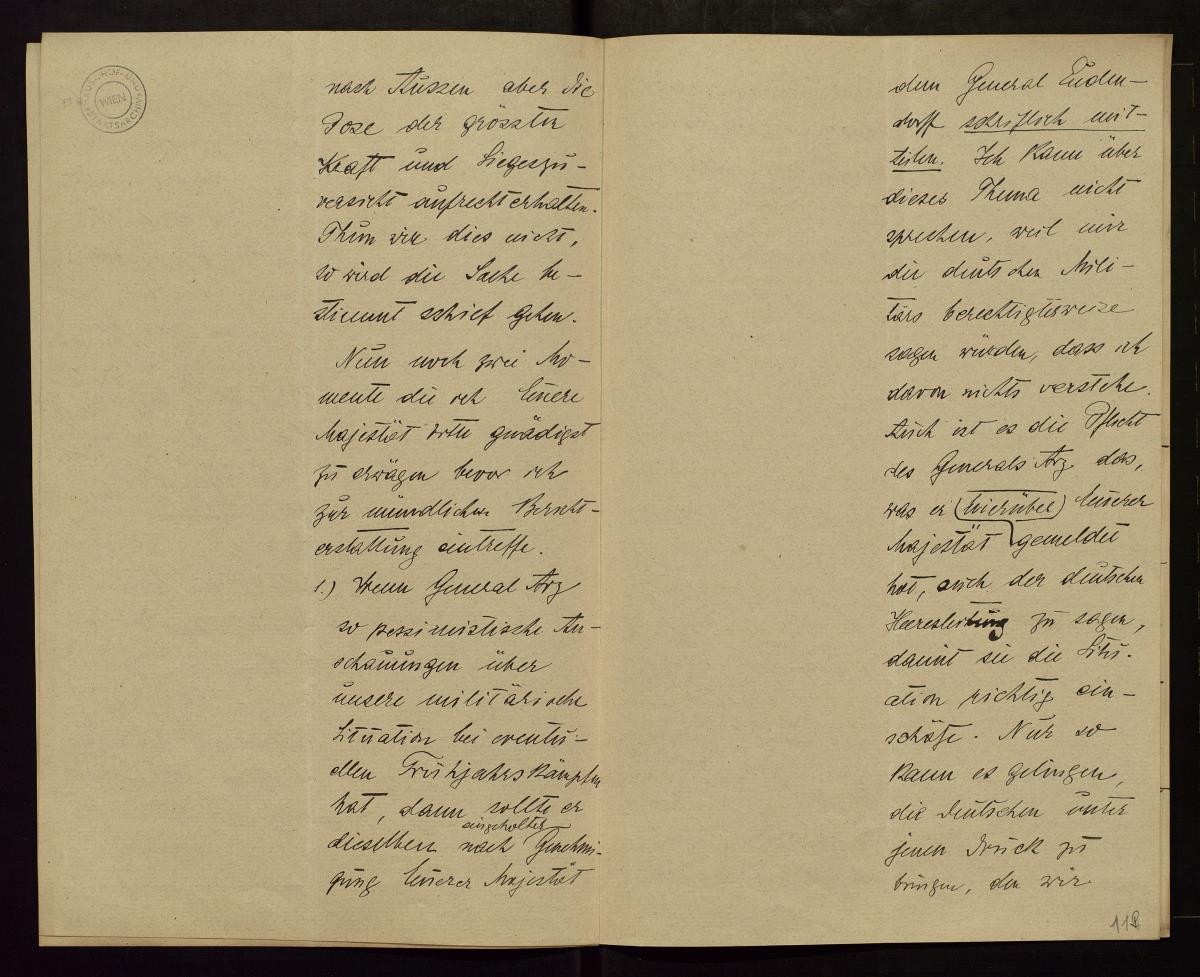 HAUS-, HOF- UND
STAATSARCHIV
WIEN
nach Aussen aber die
Pose der grössten
Kraft und Siegeszu-
versicht aufrechterhalten.
Thun wir dies nicht,
so wird die Sache be-
stimmt schief gehen.
Nun noch zwei Mo-
mente die ich Euere
Majestät bitte gnädigst
zu erwägen bevor ich
zur mündlichen Bericht-
erstattung eintreffe.
1.) Wenn General Arz
so pessimistische An-
schauungen über
unsere militärische
Situation bei eventu-
ellen Frühjahrskämpfen
hat, dann sollte er
eingeholter
dieselben nach Genehmi-
gung Euerer Majestät
dem General Luden-
dorff schriftlich mit-
teilen. Ich kann über
dieses Thema nicht
sprechen, weil mir
die deutschen Mili-
tärs berechtigterweise
sagen würden, dass ich
davon nichts verstehe.
Auch ist es die Pflicht
des Generals Arz das,
was er (hierüber) Euerer
Majestät gemeldet
hat, auch der deutschen
Heeresleitung zu sagen,
damit sie die Situ-
ation richtig ein-
schäze. Nur so
kann es gelingen,
die Deutschen unter
jenen Druck zu
bringen, den wir
118